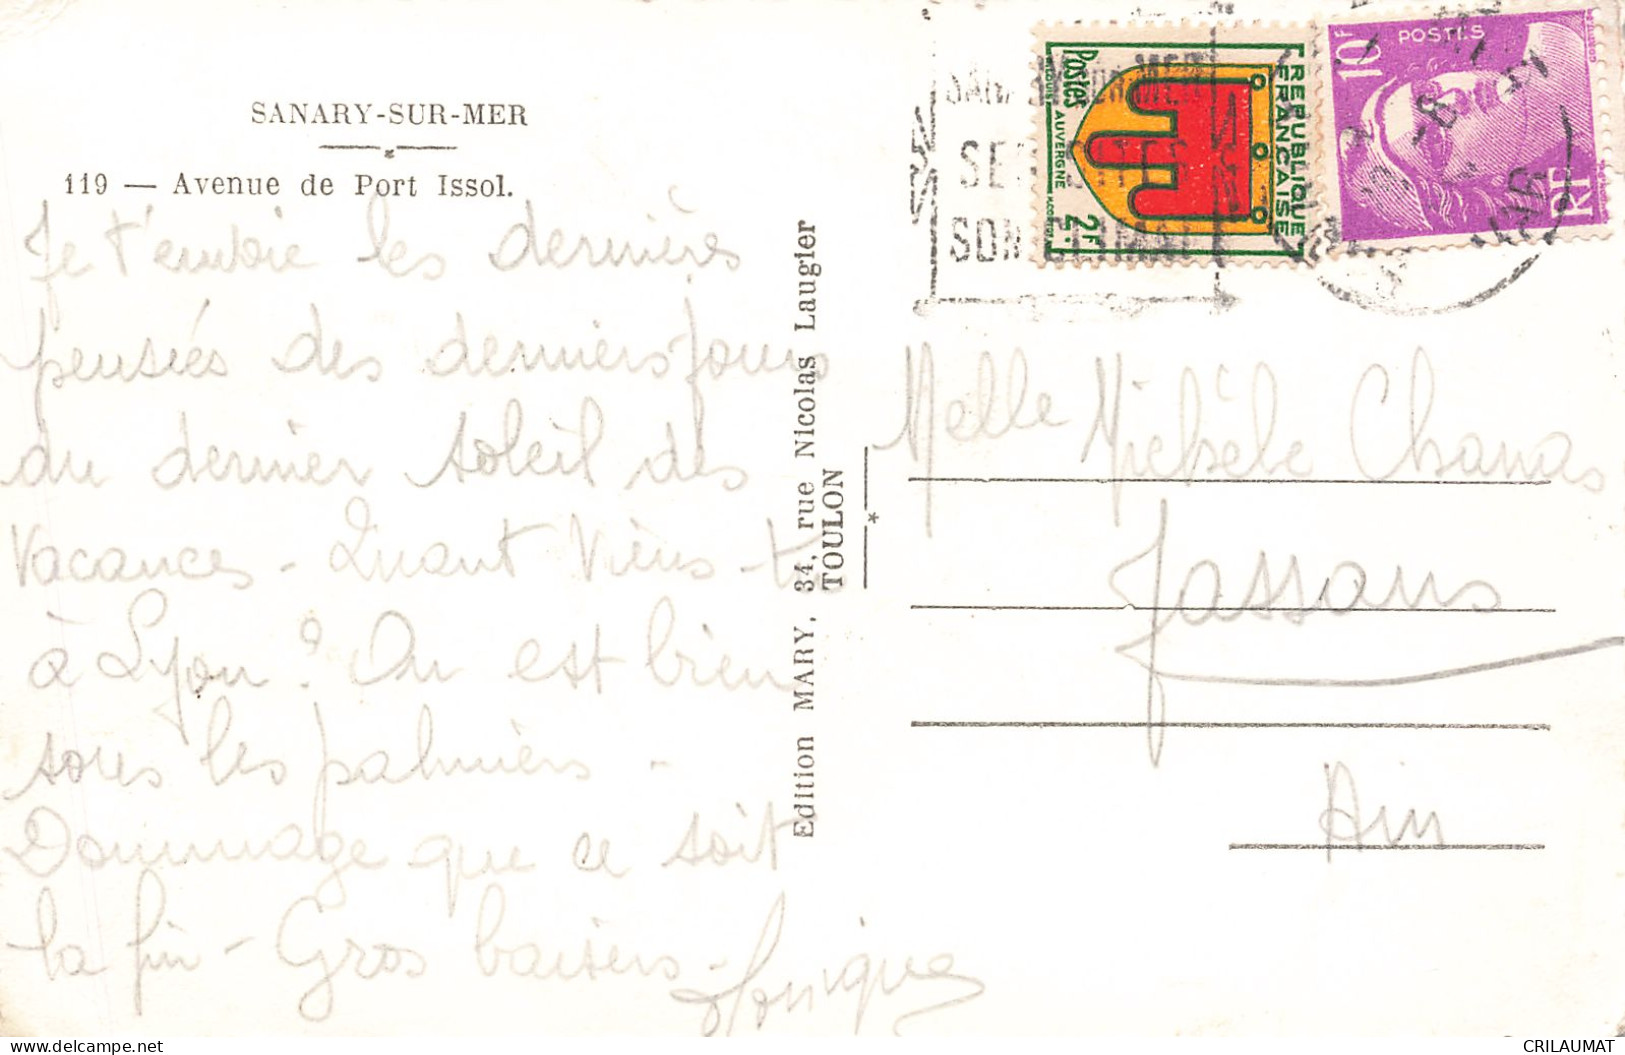 SANARY-SUR-MER
119 — Avenue de Port Issol.
Je t'envoie les dernières
pensées des derniers jours
du dernier soleil des
vacances - Quant viens-tu
à Lyon ? On est bien
sous les palmiers -
Dommage que ce soit
la fin - Gros baisers -
Monique
Edition MARY, 34, rue Nicolas Laugier
TOULON
*
SANARY-SUR-MER
SES SITES
SON CLIMAT
Postes
AUVERGNE
2F
REPUBLIQUE
FRANÇAISE
10F
POSTES
RF
VAR
Melle Michèle Chanas
Jassans
Ain
CRILAUMAT